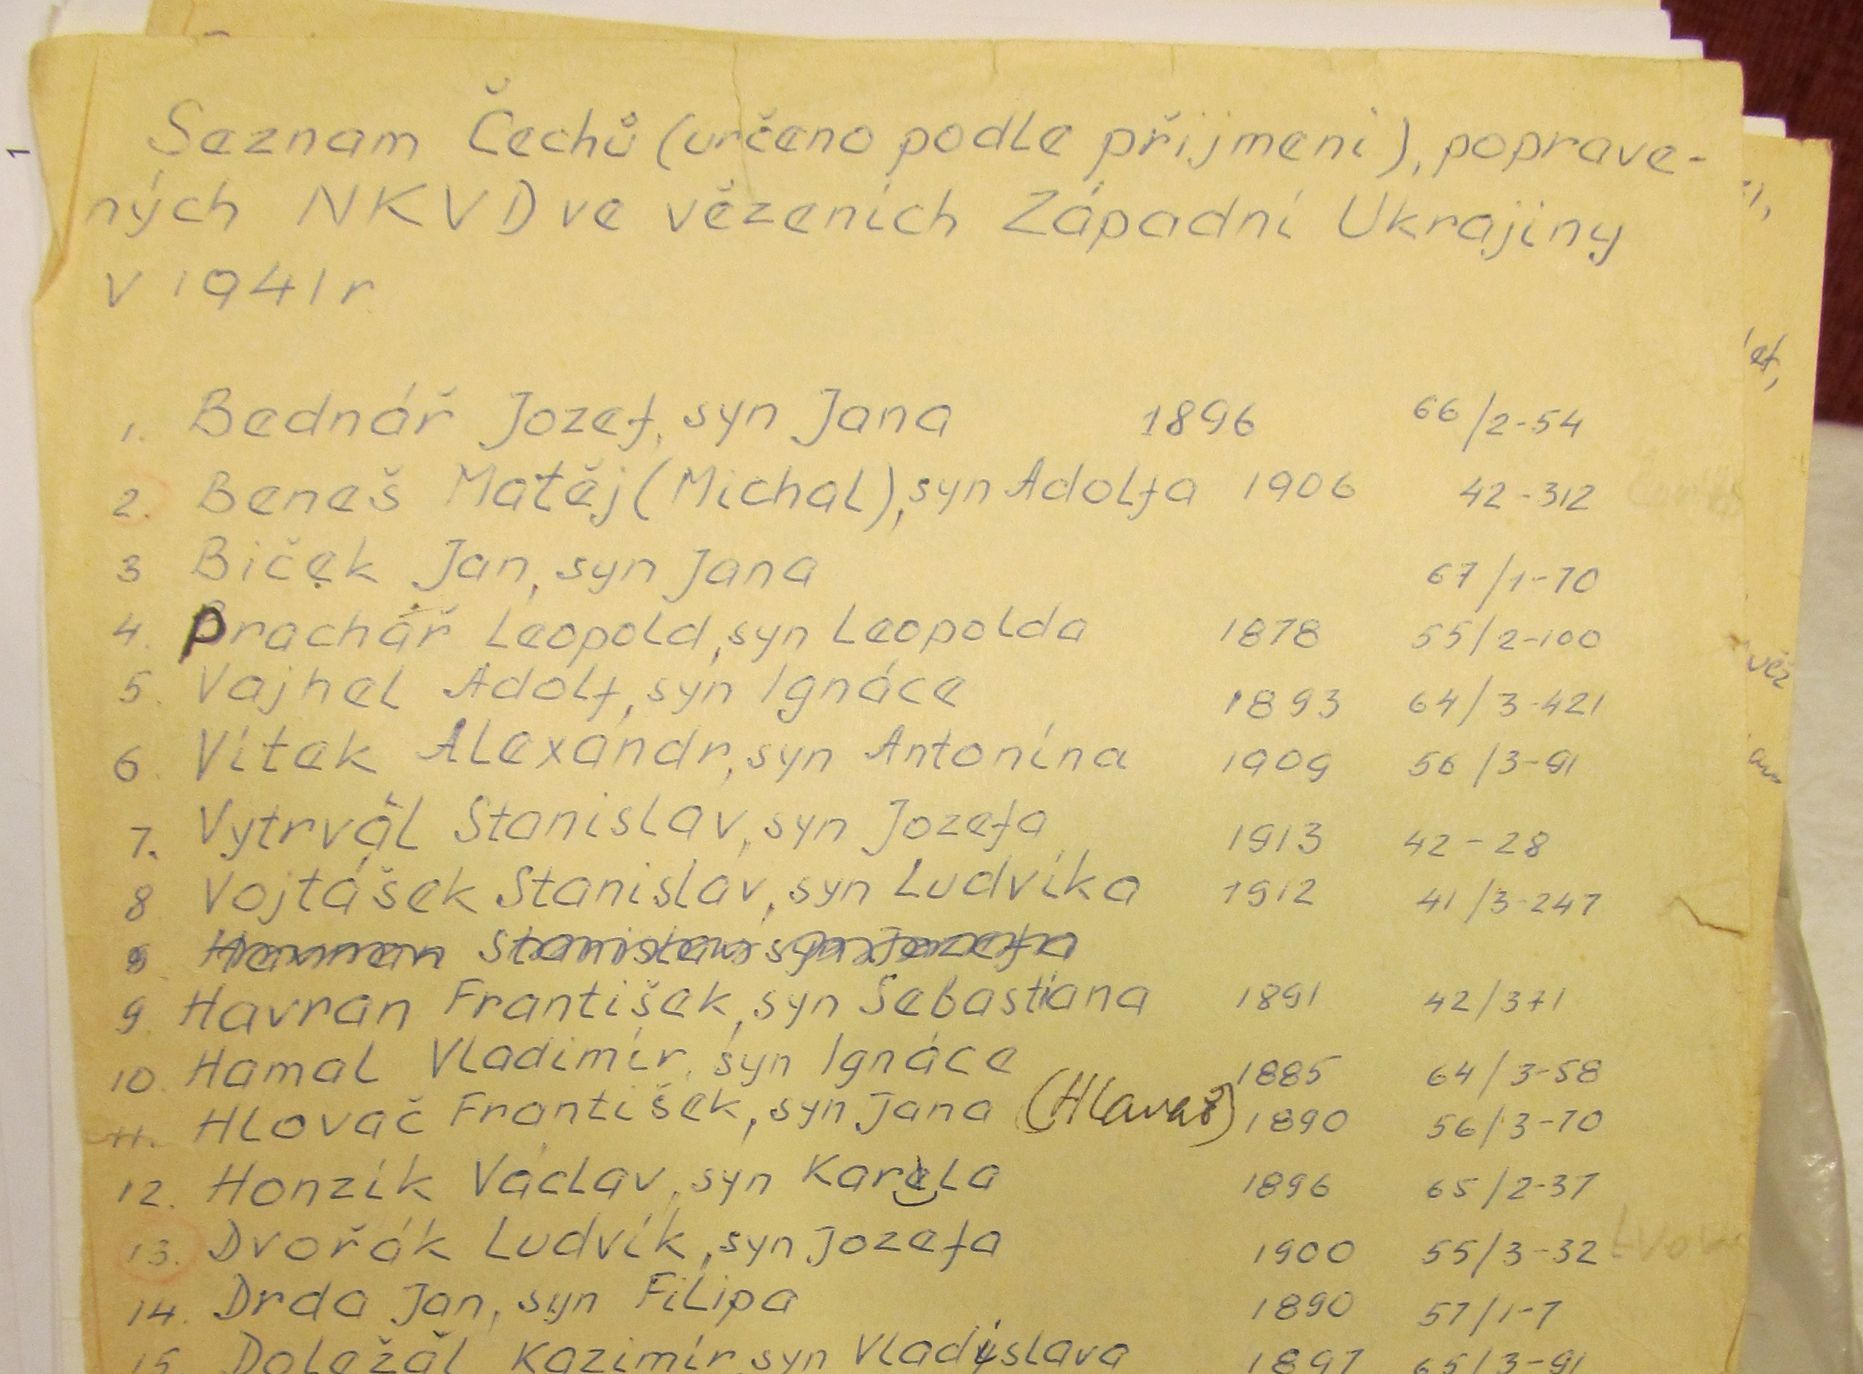 Seznam Čechů (určeno podle přijmeni), poprave-
ných NKVD ve vězeních Západní Ukrajiny
v 1941 r
1. Bednář Jozef, syn Jana 1896 66/2-54
2. Beneš Matěj (Michal), syn Adolfa 1906 42-312
3 Biček Jan, syn Jana 67/1-70
4. Prachář Leopold, syn Leopolda 1878 55/2-100
5. Vajhel Adolf, syn Ignáce 1893 64/3-421
6. Vítek Alexandr, syn Antonína 1909 56/3-91
7. Vytrvál Stanislav, syn Jozefa 1913 42-28
8 Vojtášek Stanislav, syn Ludvíka 1912 41/3-247
9. Havran František, syn Šebastiana 1891 42/371
10. Hamal Vladimír, syn Ignáce 1885 64/3-58
11. Hlovač František, syn Jana (Hlavač) 1890 56/3-70
12. Honzík Václav, syn Karela 1896 65/2-37
13. Dvořák Ludvík, syn Jozefa 1900 55/3-32
14. Drda Jan, syn Filipa 1890 57/1-7
15 Doležál Kazimír, syn Vladyslava 1897 65/3-91